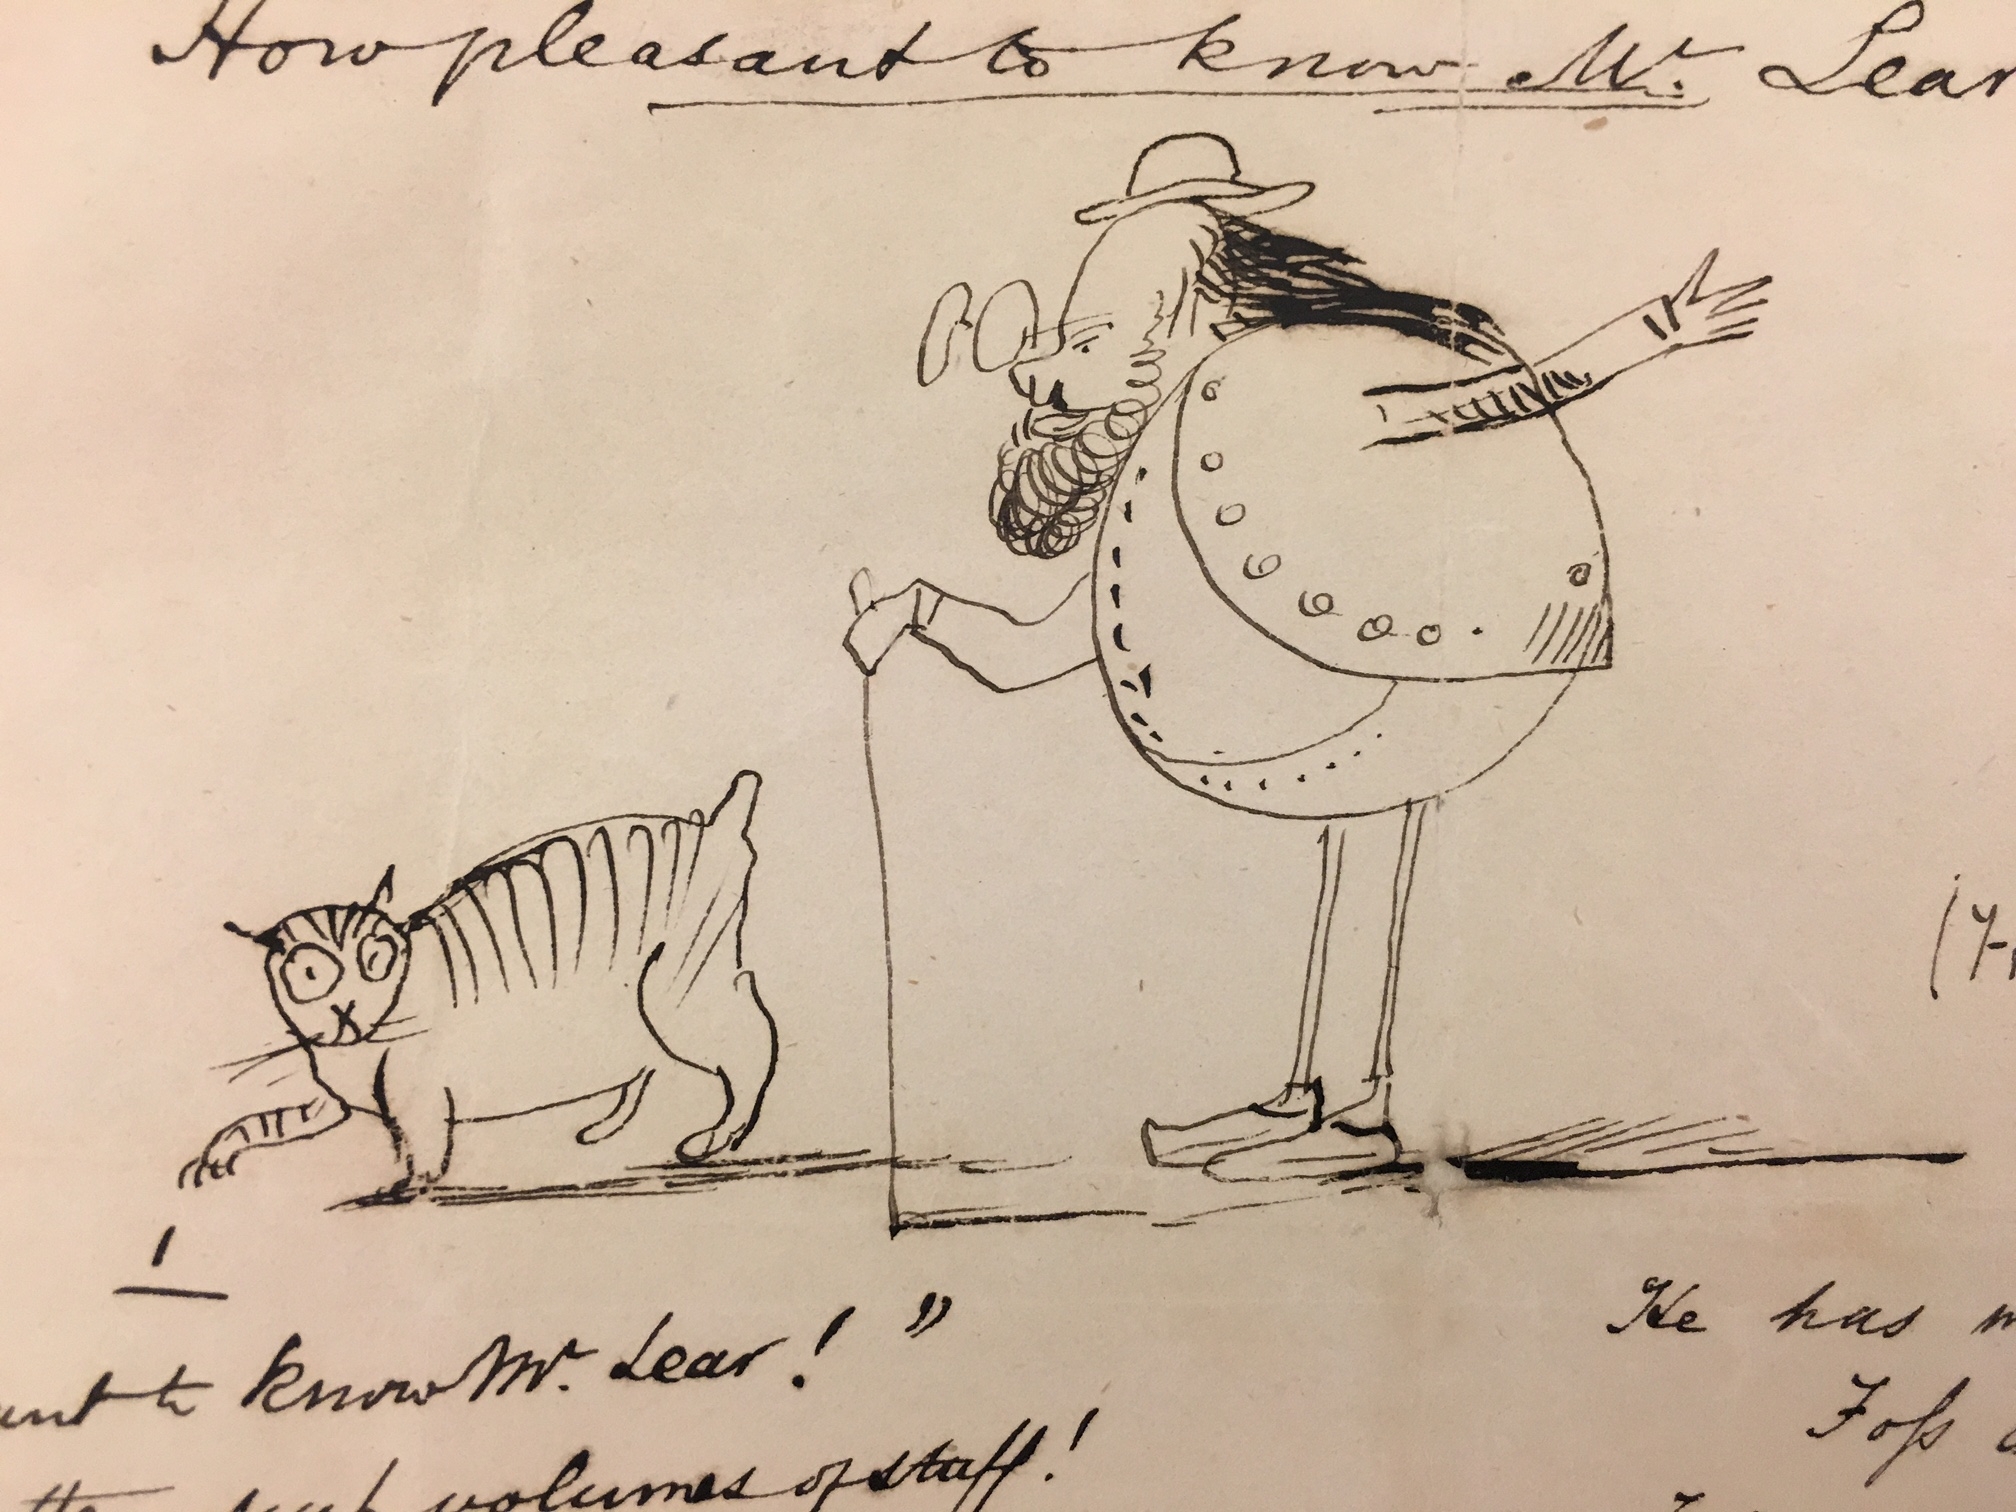 How pleasant to know Mr. Lear
1
ant to know Mr. Lear! ”
such volumes of stuff!
He has
Foſs